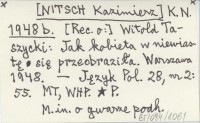 [NITSCH Kazimierz] K.N.
1948 b. [Rec. o:] Witold Ta-
szycki: Jak kobieta w niewias-
tę się przeobraziła. Warszawa
1948. — Język Pol. 28, nr 2:
55. MT, WHP. ★ P.
M. in. o gwarze podh.